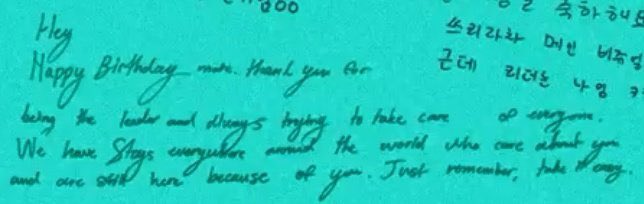 축하해요
쓰리라차 메인 비주얼
근데 리더는 나영
Hey
Happy Birthday mate. thank you for
being the leader and always trying to take care of everyone.
We have Stays everywhere around the world who care about you
and are still here because of you. Just remember, take it easy.